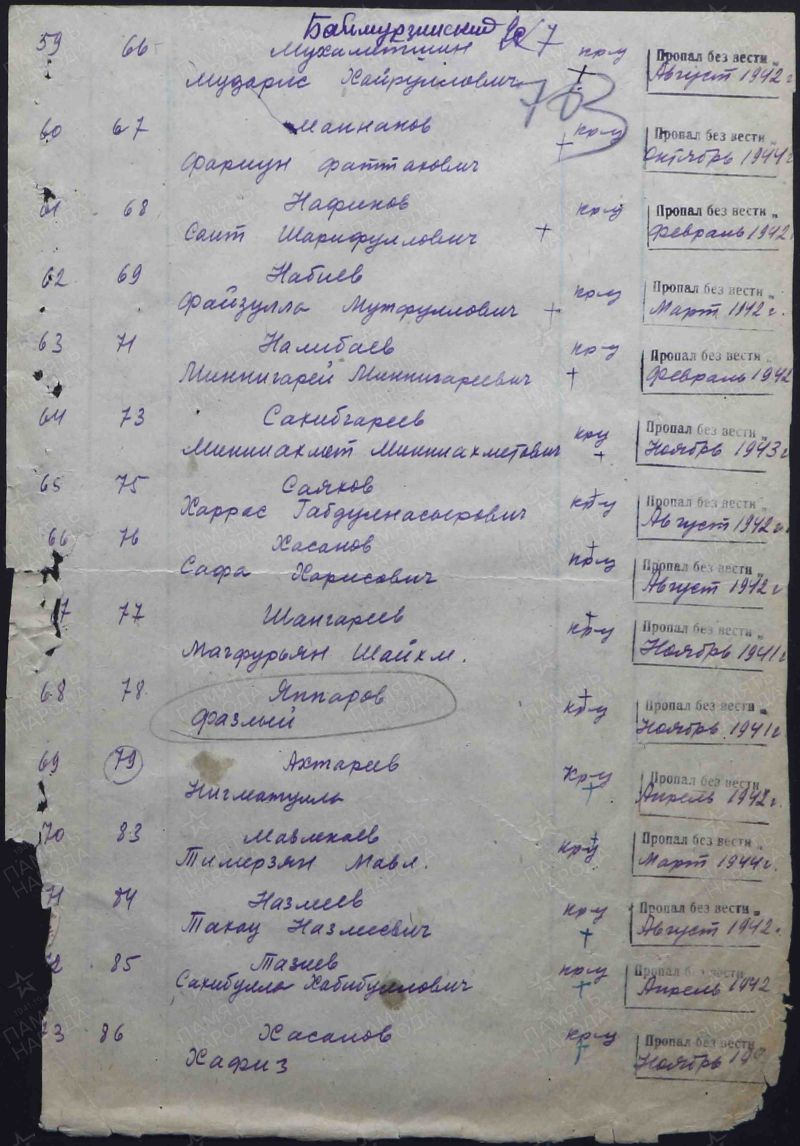 Баймурзинский с/с 7
59 66 Мухаметшин кр-ц Пропал без вести
Мударис Хайруллович + Август 1942 г
703
60 67 Маннанов кр-ц Пропал без вести
Фариун Фаттахович + Октябрь 1944 г
61 68 Нафиков кр-ц Пропал без вести
Саит Шарифуллович + Февраль 1942
62 69 Набиев кр-ц Пропал без вести
Файзулла Мутфуллович + Март 1942 г.
63 71 Налибаев кр-ц Пропал без вести
Миннигарей Миннигареевич + Февраль 1942
64 73 Сахибгареев кр-ц Пропал без вести
Минниахмет Минниахметович + Ноябрь 1943 г
65 75 Саяхов кр-ц Пропал без вести
Харрас Габдулнасырович Август 1942 г
66 76 Хасанов кр-ц Пропал без вести
Сафа Харисович Август 1942 г
7 77 Шангареев кр-ц Пропал без вести
Магфурьян Шайхм. Ноябрь 1941 г
68 78 Яппаров кр-ц Пропал без вести
Фазлый Ноябрь 1941 г
69 79 Ахтареев кр-ц Пропал без вести
Нигматулла + Апрель 1942 г.
70 83 Мавлекаев кр-ц Пропал без вести
Тимерзян Мавл. Март 1944 г.
71 84 Назмеев кр-ц Пропал без вести
Такау Назмеевич + Август 1942 г.
2 85 Тазиев кр-ц Пропал без вести
Сахибулла Хабибуллович + Апрель 1942
73 86 Хасанов кр-ц Пропал без вести
Хафиз + Ноябрь
ПАМЯТЬ НАРОДА